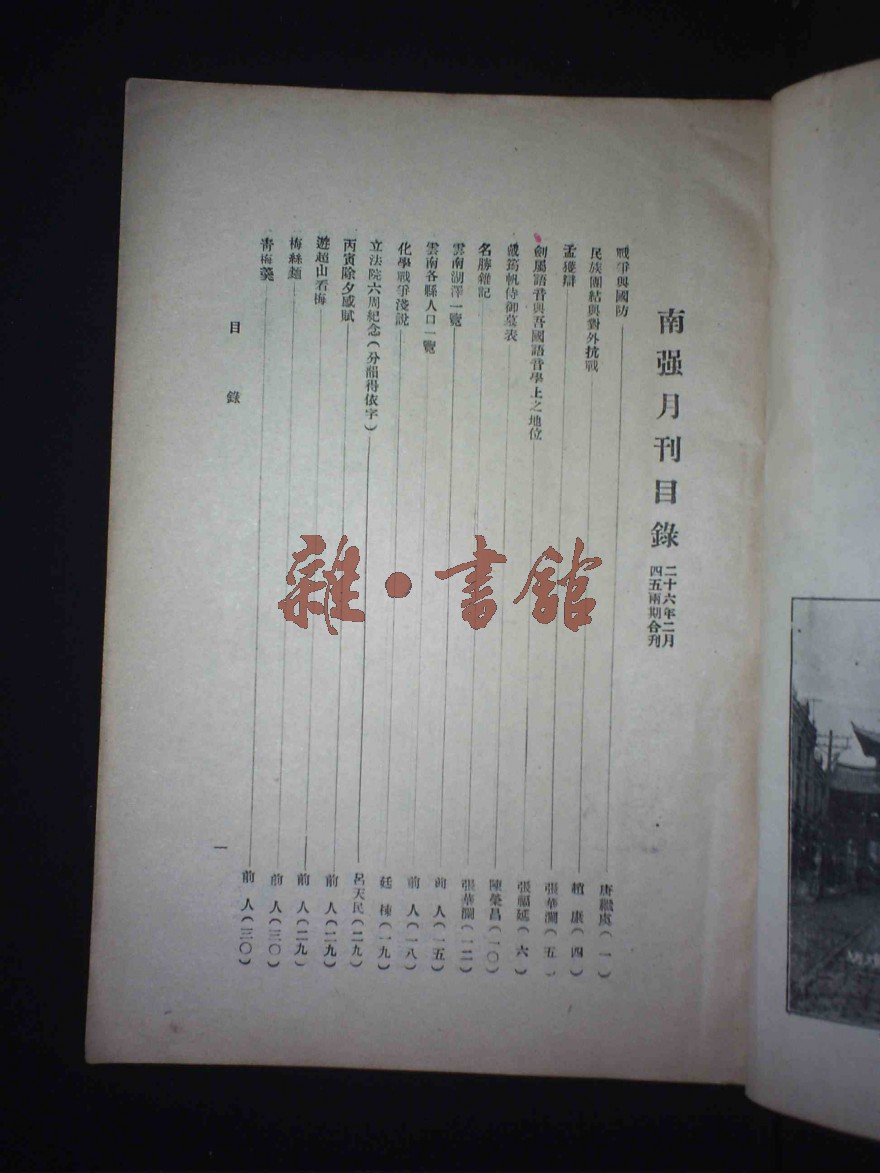 南强月刊目錄
二十六年二月
四五兩期合刊
戰爭與國防 唐繼虞(一)
民族團結與對外抗戰 趙康(四)
孟獲辯 張華瀾(五)
劍屬語音與吾國語音學上之地位 張福延(六)
戴筠帆侍御墓表 陳榮昌(一〇)
名勝雜記 張華瀾(一二)
雲南湖澤一覽 前人(一五)
雲南各縣人口一覽 前人(一八)
化學戰爭淺說 廷棟(一九)
立法院六周紀念(分韻得依字) 呂天民(二九)
丙寅除夕感賦 前人(二九)
遊超山看梅 前人(二九)
梅絲麵 前人(三〇)
青梅羹 前人(三〇)
目錄
一
雜·書館